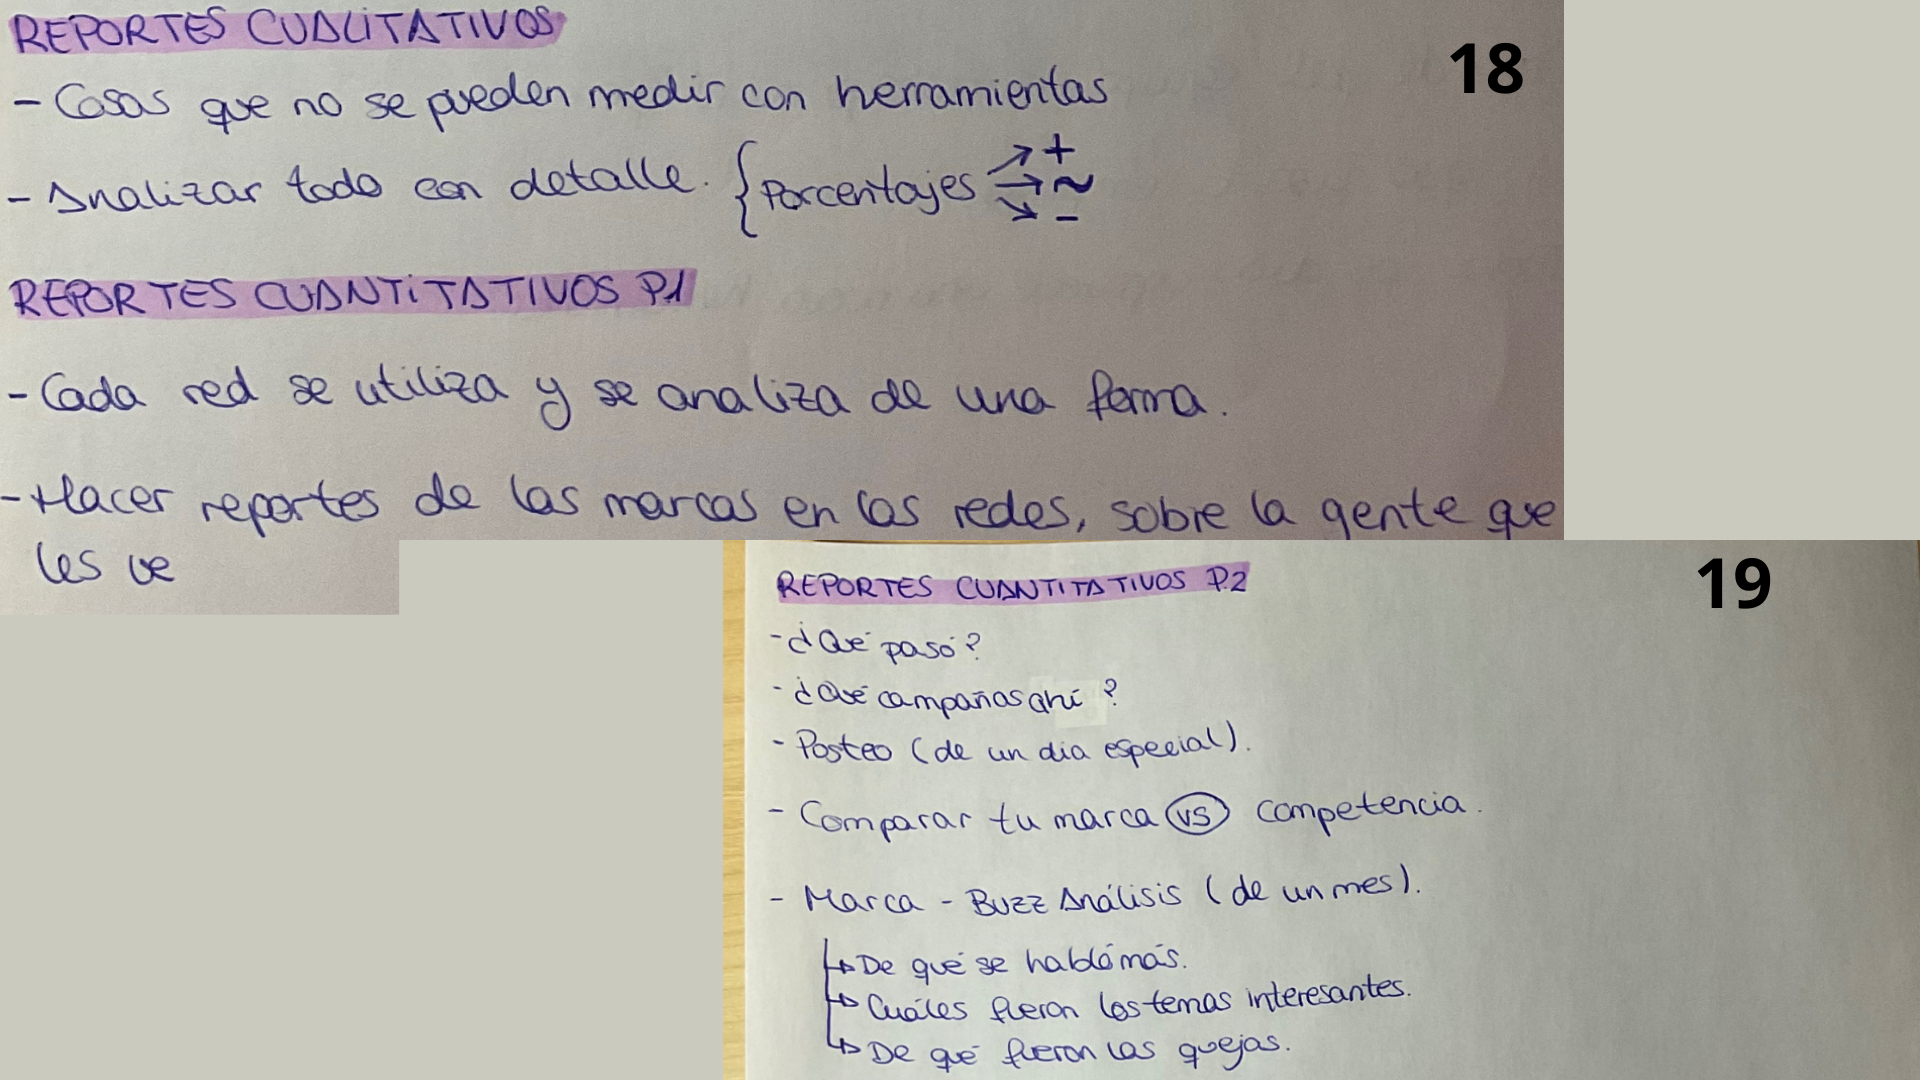 REPORTES CUALITATIVOS
18
- Cosas que no se pueden medir con herramientas
- Analizar todo con detalle. { Porcentajes → + → ~ → -
REPORTES CUANTITATIVOS P.1
- Cada red se utiliza y se analiza de una forma.
- Hacer reportes de las marcas en las redes, sobre la gente que
les ve
REPORTES CUANTITATIVOS P.2
19
- ¿Qué pasó?
- ¿Qué campañas ahí?
- Posteo (de un día especial).
- Comparar tu marca vs competencia.
- Marca - Buzz Análisis (de un mes).
↳ De qué se habló más.
↳ Cuáles fueron los temas interesantes.
↳ De qué fueron las quejas.